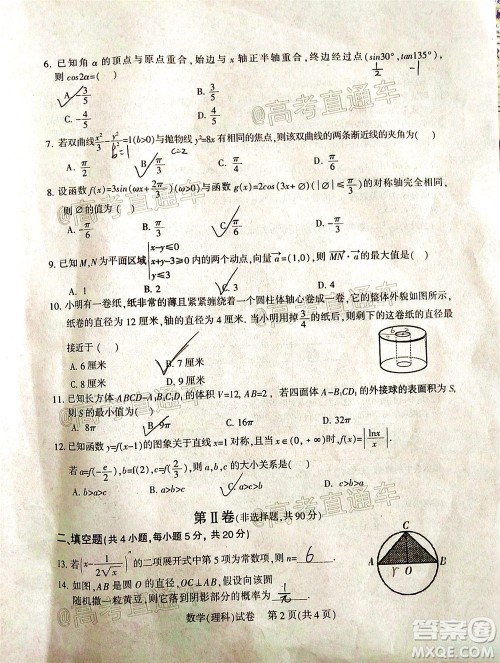 6. 已知角 α 的顶点与原点重合，始边与 x 轴正半轴重合，终边经过点(sin30°,tan135°)，
则 cos2α=( )
A. -3/5 B. 3/5 C. -4/5 D. 4/5
7. 若双曲线x²/3-y²/b²=1(b>0)与抛物线 y²=8x 有相同的焦点，则该双曲线的两条渐近线的夹角为( )
b²=1 c=2
A. π/2 B. π/3 C. π/4 D. π/6
8. 设函数 f(x)=3sin(ωx+2π/3)(ω>0)与函数 g(x)=2cos(3x+∅)(|∅|≤π/3)的对称轴完全相同，
则 ∅ 的值为( )
A. -π/6 B. π/3 C. π/6 D. -π/3
9. 已知 M,N 为平面区域{x-y≤0 x+y-3≥0 x≤0}内的两个动点，向量a=(1,0)，则MN·a的最大值是( )
A. 1 B. 2 C. 3 D. 4
10. 小明有一卷纸，纸非常的薄且紧紧缠绕着一个圆柱体轴心卷成一卷，它的整体外貌如图所示，
纸卷的直径为 12 厘米，轴的直径为 4 厘米，当小明用掉3/4的纸后，则剩下的这卷纸的直径最
接近于( )
A. 6 厘米 B. 7 厘米
C. 8 厘米 D. 9 厘米
11. 已知长方体 ABCD-A₁B₁C₁D₁ 的体积 V=12，若四面体 A-B₁CD₁ 的外接球的表面积为 S，
则 S 的最小值为( )
A. 8π B. 9π C. 16π D. 32π
12. 已知函数 y=f(x-1)的图象关于直线 x=1 对称，且当 x∈(0,+∞)时，f(x)=|lnx/x|
若 a=f(-e/2),b=f(2),c=f(2/3)，则 a,b,c 的大小关系是( )
A. b>a>c B. b>c>a C. a>c>b D. c>b>a
第Ⅱ卷 (非选择题，共 90 分)
二、填空题(共 4 小题，每小题 5 分，共 20 分)
13. 若(x-1/2√x)ⁿ的二项展开式中第 5 项为常数项，则 n= 6 .
14. 如图，圆 O 的直径为 AB，CO⊥AB，O 为圆心，在圆 O 内
随机撒一粒黄豆，它落到阴影部分的概率为 1/π .
C
A O B
r
数学(理科)试卷 第 2 页(共 4 页)
@高考直通车
@高考直通车
@高考直通车
答案圈
MXQE.COM